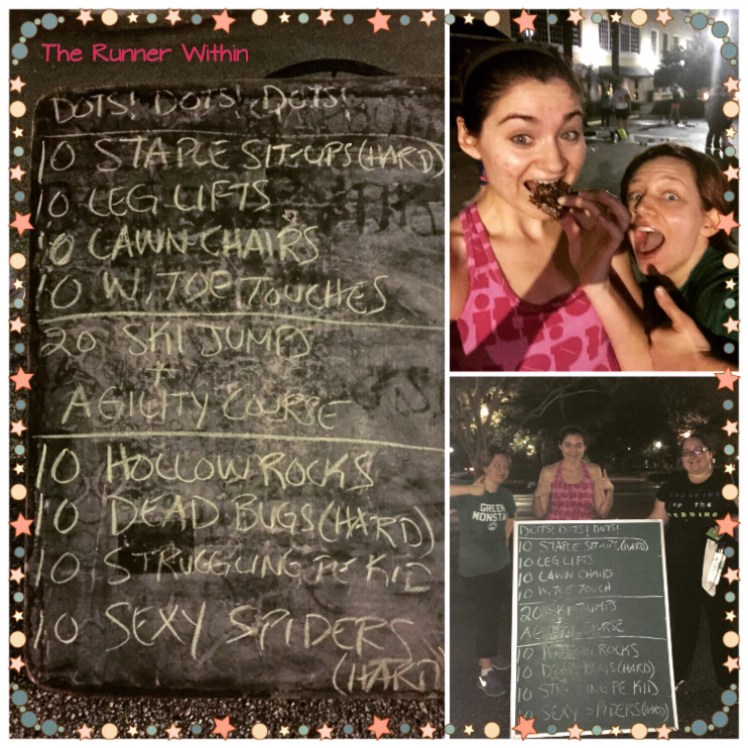 The Runner Within
DOTS! DOTS! DOTS!
10 STAPLE SIT-UPS (HARD)
10 LEG LIFTS
10 LAWN CHAIRS
10 W. TOE TOUCHES
20 SKI JUMPS
+
AGILITY COURSE
10 HOLLOW ROCKS
10 DEAD BUGS (HARD)
10 STRUGGLING PE KID
10 SEXY SPIDERS
(HARD)
GREEN
MONSTA
DOTS! DOTS! DOTS!
10 STAPLE SIT-UPS (HARD)
10 LEG LIFTS
10 LAWN CHAIRS
10 W. TOE TOUCH
20 SKI JUMPS
COURSE
10 ROCKS
10 DEAD BUGS (HARD)
10 PE KID
10 SEXY SPIDERS (HARD)